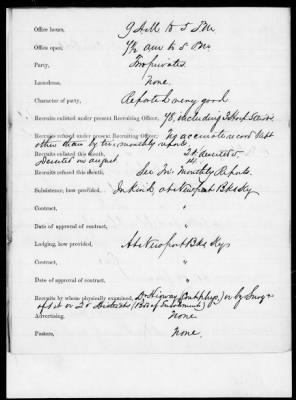 Office hours, 9 A.M. to 5 P.M.
Office open, 7½ am to 5 Pm.
Party, Two privates
Lancdress, None.
Character of party, Reported very good
Recruits enlisted under present Recruiting Officer, 48, including
Recruits refused under present Recruiting Officer, No accurate record kept
other than by tri monthly reports.
Recruits enlisted this month,
Recruits refused this month, See Tri Monthly Reports.
Subsistence, how provided, In Kind, at Newport Bks Ky
Contract, "
Date of approval of contract, "
Lodging, how provided, At Newport Bks Ky
Contract, "
Date of approval of contract, "
Recruits by whom physically examined, Dr. (Contr. phys.) or by Surg n
of 1st or 2d Districts, (Bds of Enrolment)
Advertising, None
Posters, None.